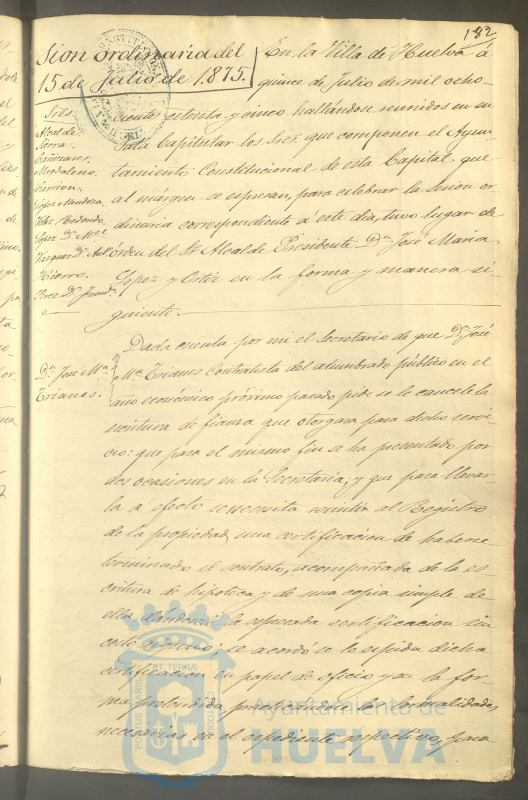 182
Sion ordinaria del
15 de Julio de 1875.
En la Villa de Huelva á
quince de Julio de mil ocho-
cientos setenta y cinco hallándose reunidos en su
Sala Capitular los Sres. que componen el Ayun
tamiento Constitucional de esta Capital que
al márgen se espresan, para celebrar la Sesion or
dinaria correspondiente á este dia, tuvo lugar de
órden del Sr. Alcalde Presidente Dn. José Maria
Lopez y Ortiz en la forma y manera si-
guiente.
Sres.
Alcalde
Serra.
Magdaleno.
Garrion.
Lopez Mendoza.
Redondo.
Lopez Dn. Ml.
Vazquez Dn. Anto.
Hierro.
Perez Dn. Juan.
Dn. José Ma.
Trianes.
Dada cuenta por mi el Secretario de que Dn. José
Ma. Trianes Contratista del alumbrado público en el
año económico próximo pasado pide se le cancele la
escritura de fianza que otorgara para dicho servi-
cio: que para el mismo fin se ha presentado por
dos ocasiones en la Secretaria; y que para llevar-
la á efecto se necesita remitir al Registro
de la propiedad, una certificacion de haberse
terminado el contrato, acompañada de la es
critura de hipoteca y de una copia simple de
ella, la espresada certificacion sin
se acordó se le espida dicha
certificacion en papel de oficio y en la for-
ma pretendida, las formalidades
necesarias en el espediente respectivo, para
PORTUS MARIS ET TERRÆ CUSTODIA
Ayuntamiento de
HUELVA